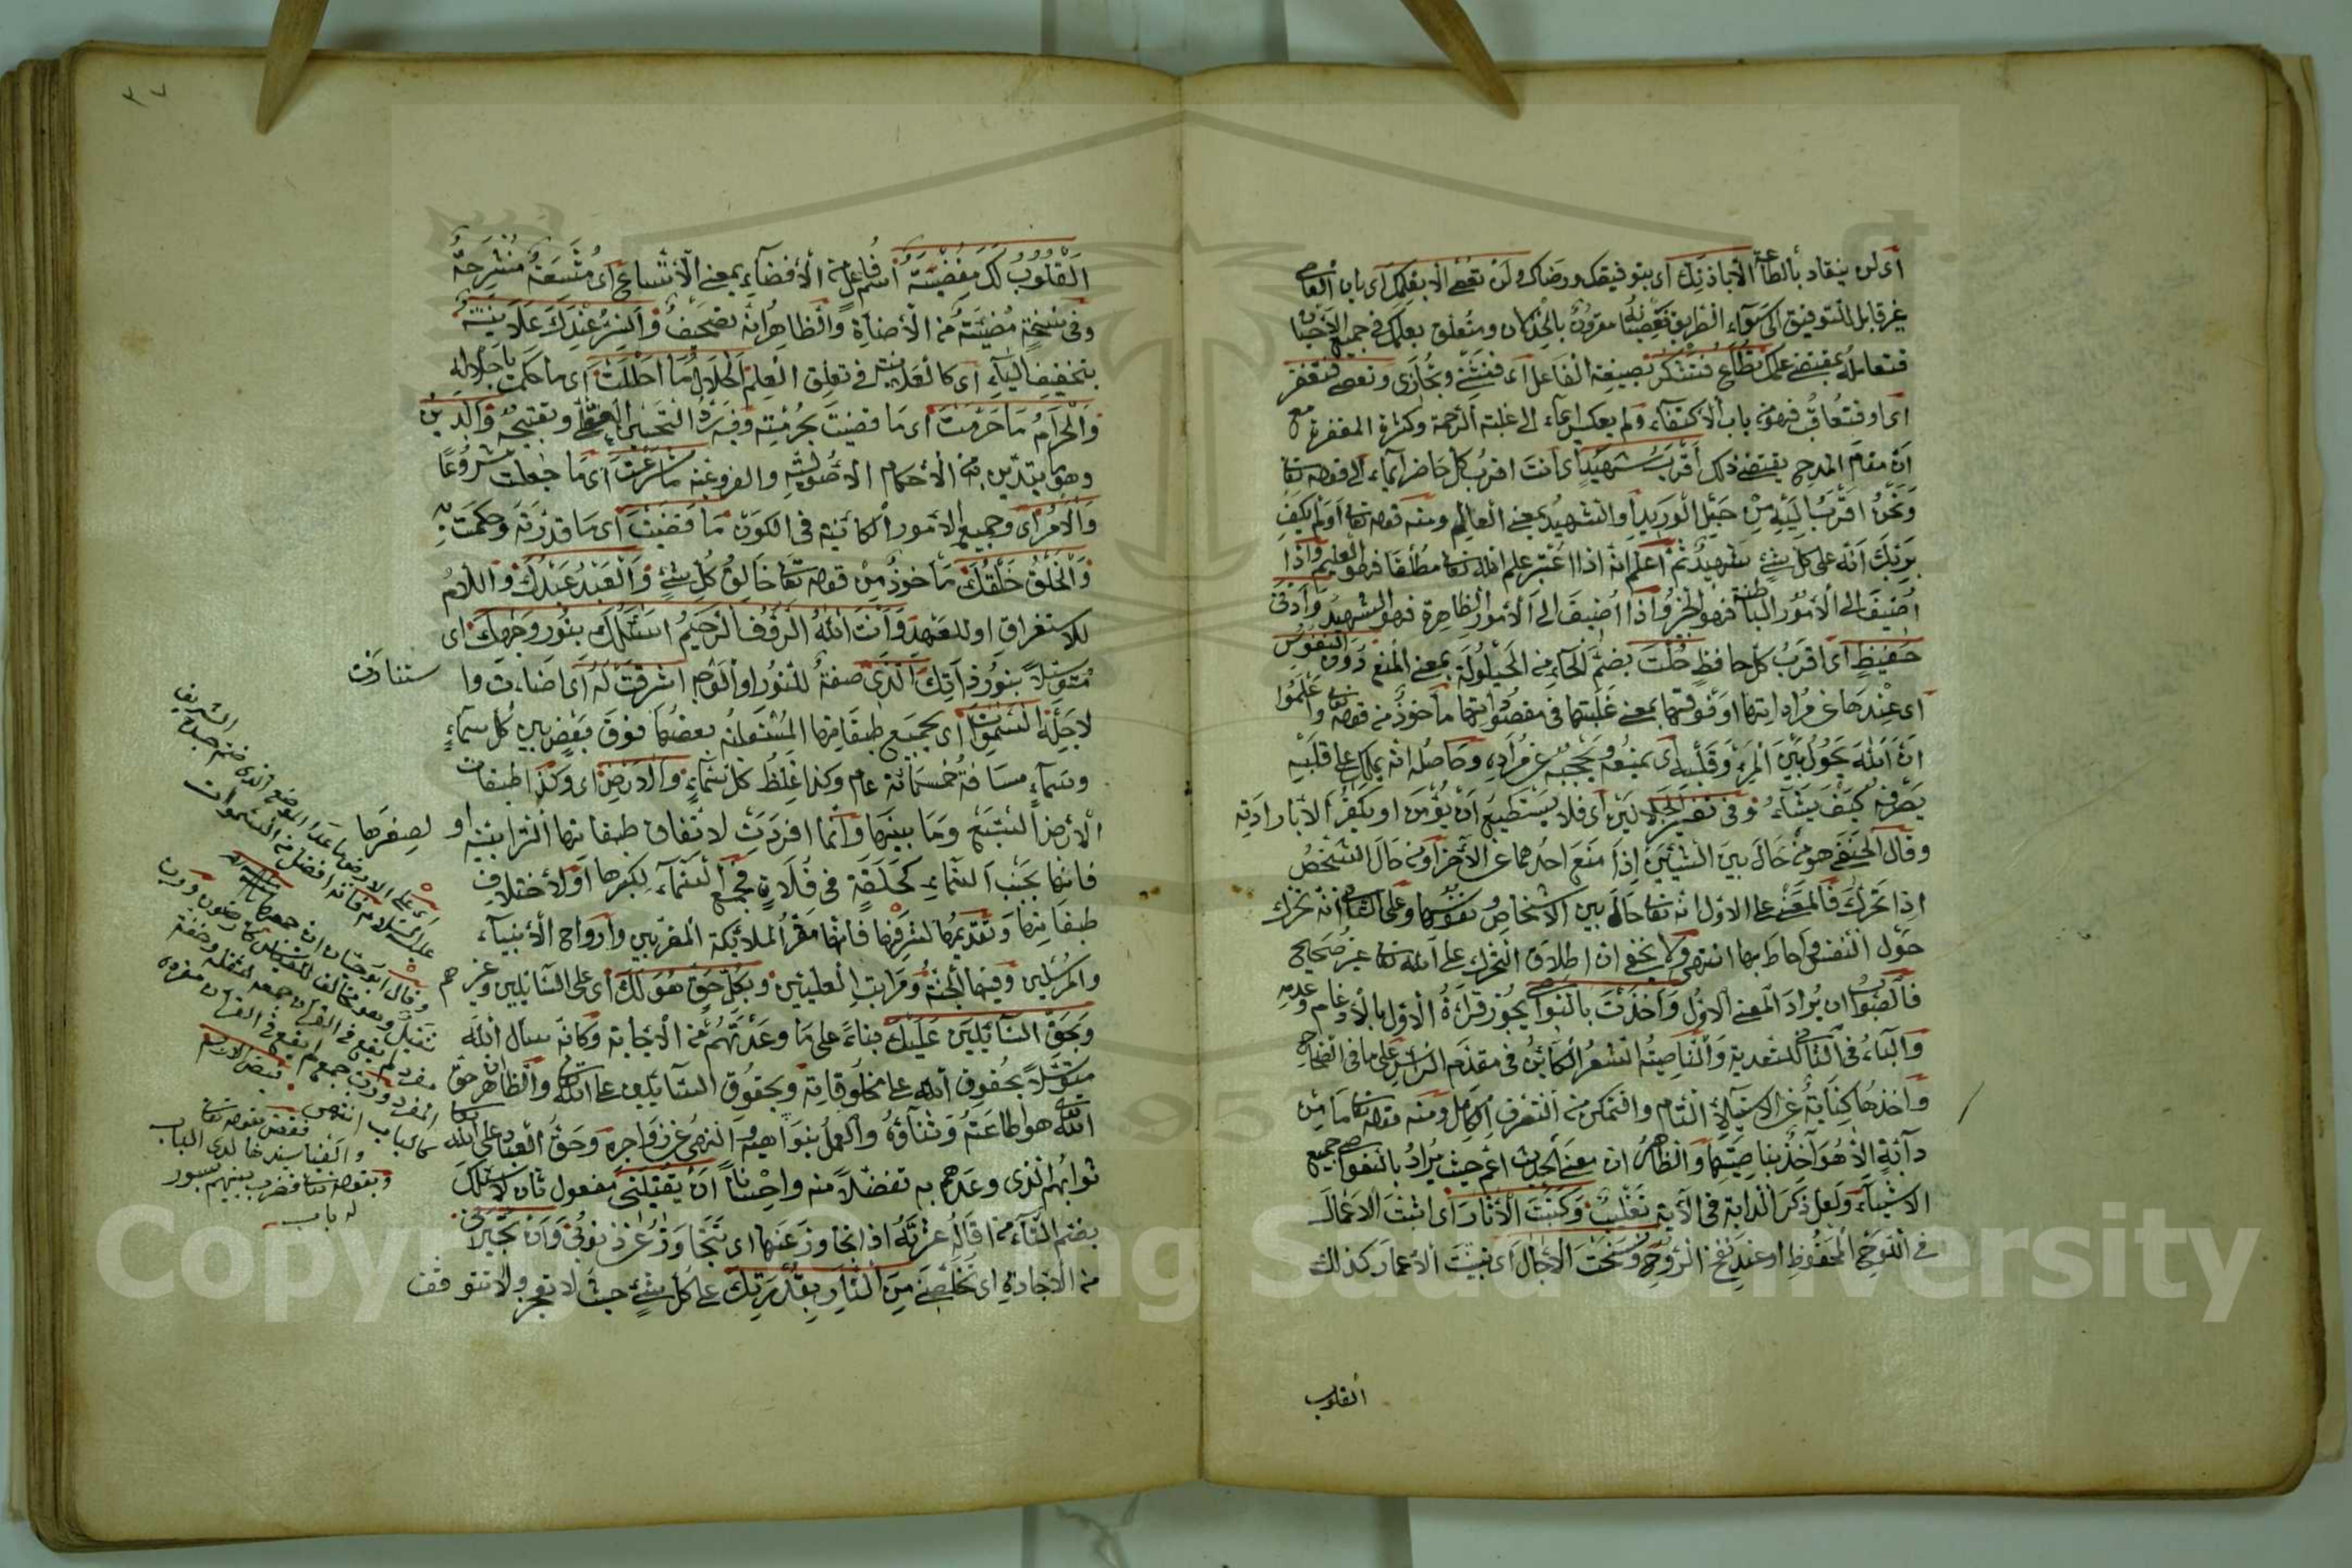 اى لن ينقاد بالطاعة الا باذنك اى بتوفيقك ورضاك ولن تعصى الا بعلمك اى بان العاصى
غير قابل للتوفيق الى سواء الطريق فعصيانه مقرون بالخذلان ومتعلق بعلمك فى جميع الاحيان
فتعامله بمقتضى علمك تطاع فتشكر بصيغة الفاعل اى فتثنى وتجازى وتعصى فتغفر
اى او فتعاقب فهو من باب الاكتفاء ولم يعكس ايماء الى غلبة الرحمة وكثرة المغفرة مع
ان مقام المدح يقتضى ذلك اقرب شهيد اى انت اقرب كل حاضر ايماء الى قوله تعالى
ونحن اقرب اليه من حبل الوريد او الشهيد بمعنى العالم ومنه قوله تعالى اولم يكف
بربك انه على كل شئ شهيد ثم اعلم انه اذا اعتبر علم الله تعالى مطلقا فهو العليم واذا
اضيف الى الامور الباطنة فهو الخبير واذا اضيف الى الامور الظاهرة فهو الشهيد وادنى
حفيظ اى اقرب كل حافظ حلت بضم الحاء من الحيلولة بمعنى المنع دون النفوس
اى عندها عن مراداتها او فوقها بمعنى غلبتها فى مقصوداتها مأخوذ من قوله تعالى واعلموا
ان الله يحول بين المرء وقلبه اى يمنعه ويحجبه عن مراده وحاصله انه يملك على قلبه
يصرفه كيف يشاء وفى تفسير الجلالين اى فلا يستطيع ان يؤمن او يكفر الا بارادته
وقال الحنفى هو من حال بين الشيئين اذا منع احدهما عن الآخر او من حال الشخص
اذا تحرك فالمعنى على الاول انه تعالى حال بين الاشخاص ونفوسها وعلى الثانى انه تحرك
حول النفس واحاط بها انتهى ولا يخفى ان اطلاق التحرك على الله تعالى غير صحيح
فالصواب ان يراد المعنى الاول واخذت بالنواصى يجوز قراءة الاول بالادغام وعدمه
والباء فى الثانى للتعدية والناصية الشعر الكائن فى مقدم الرأس على ما فى الصحاح
واخذها كناية عن الاستيلاء التام والتمكن من التصرف الكامل ومنه قوله تعالى ما من
دابة الا هو آخذ بناصيتها والظاهر ان معنى الحديث اعم حيث يراد بالنواصى جميع
الاشياء ولعل ذكر الدابة فى الآية تغليب وكتبت الآثار اى اثبت الاعمال
فى اللوح المحفوظ او عند نفخ الروح ونسخت الآجال اى بينت الاعمار كذلك
القلوب
٣٧
القلوب لك مفضية اسم فاعل من الافضاء بمعنى الاتساع اى متسعة منشرحة
وفى نسخة مضيئة من الاضاءة والظاهر انه تصحيف والسر عندك علانية
بتخفيف الياء اى كالعلانية فى تعلق العلم الحلال ما احللت اى ما حكمت باحلاله
والحرام ما حرمت اى ما قضيت بحرمته وفيه رد التحسين العقلى وتقبيحه والدين
وهو ما يتدين به من الاحكام الاصولية والفروعية ما شرعت اى ما جعلت مشروعا
والامر اى وجميع الامور الكائنة فى الكون ما قضيت اى ما قدرته وحكمت به
والخلق خلقك مأخوذ من قوله تعالى خالق كل شئ والعبد عبدك واللام
للاستغراق او للعهد وانت الله الرؤف الرحيم اسئلك بنور وجهك اى
متوسلا بنور ذاتك الذى صفة للنور او الوجه اشرقت له اى اضاءت وا
ستنارت
لاجله السموات اى بجميع طبقاتها المشتملة بعضها فوق بعض بين كل سماء
وسماء مسافة خمسمائة عام وكذا غلظ كل سماء والارض اى وكذا طبقات
الارض السبع وما بينها وانما افردت لاتفاق طبقاتها الترابية او
لصغرها
فانها بجنب السماء كحلقة فى فلاة فجمع السماء لكبرها او لاختلاف
طبقاتها وتقديمها لشرفها فانها مقر الملائكة المقربين وارواح الانبياء
والمرسلين وفيها الجنة ومراتب العليين وبكل حق هو لك اى على السائلين وغير هم
وبحق السائلين عليك بناء على ما وعدتهم من الاجابة وكانه سأل الله
متوسلا بحقوق الله على مخلوقاته وبحقوق السائلين على الله تعالى والظاهر ان حق
الله هو اطاعته وثناؤه والعمل بنواهيه والنهى عن زواجره وحق العباد على الله تعالى
ثوابهم الذى وعدهم به تفضلا منه واحسانا ان تقيلنى مفعول ثان لاسئلك
بضم التاء من اقاله عثرته اذا تجاوز عنها اى تتجاوز عن ذنوبى وان تجيرنى
من الاجارة اى تخلصنى من النار بقدرتك على كل شئ حيث لا تعجز ولا تتوقف
اى على الارض ما عدا الموضع الذى ضم جسده الشريف
عليه السلام فانه افضل من السموات
وقال ابو حيان ان جمعها
ثقيل وهو مخالف للقياس كارضون ورب
مفرد لم يقع فى القرآن جمعه لثقله وخفة
المفرد ورب جمع لم يقع فى القرآن مفرده
كالالباب انتهى
فنقض بقوله تعالى
والفيا سيدها لدى الباب
وبقوله تعالى فضرب بينهم بسور
له باب